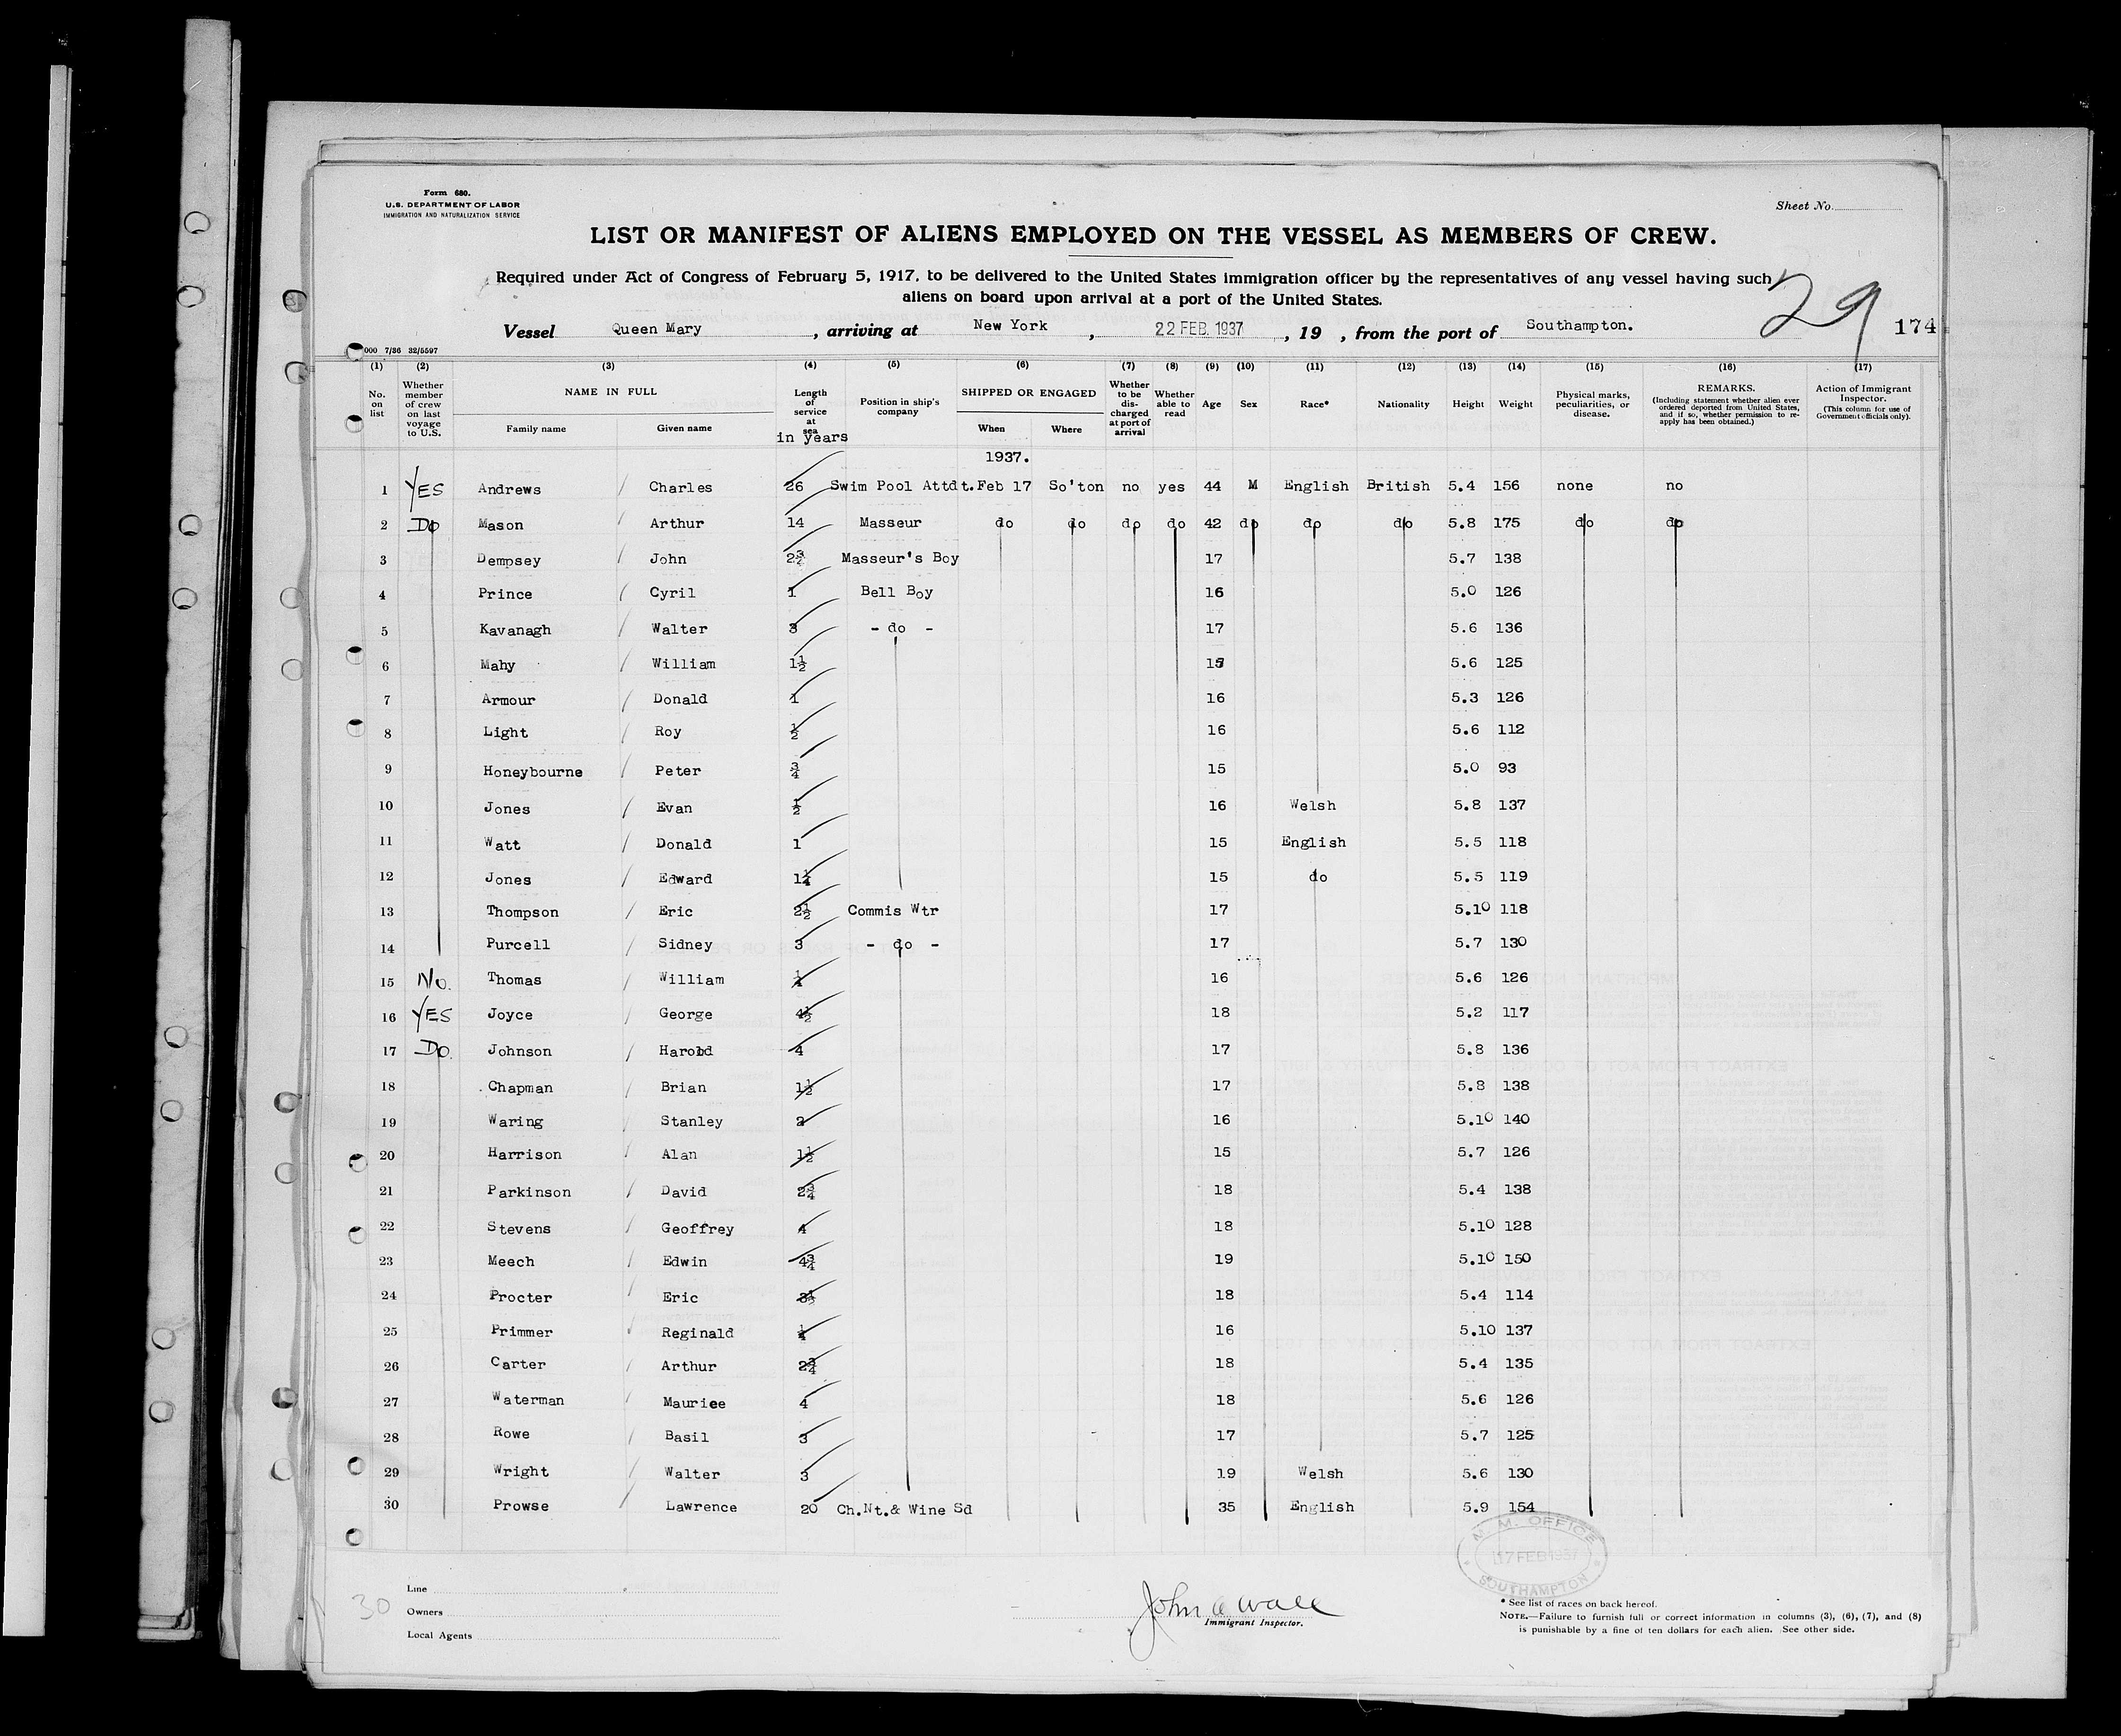 Form 680.
U.S. DEPARTMENT OF LABOR
IMMIGRATION AND NATURALIZATION SERVICE
Sheet No.
LIST OR MANIFEST OF ALIENS EMPLOYED ON THE VESSEL AS MEMBERS OF CREW.
Required under Act of Congress of February 5, 1917, to be delivered to the United States immigration officer by the representatives of any vessel having such
aliens on board upon arrival at a port of the United States.
29
174
Vessel Queen Mary, arriving at New York, 22 FEB. 1937, 19 , from the port of Southampton.
000 7/36 32/5597
(1) (2) (3) (4) (5) (6) (7) (8) (9) (10) (11) (12) (13) (14) (15) (16) (17)
No. on list
Whether member of crew on last voyage to U.S.
NAME IN FULL
Family name
Given name
Length of service at sea
in years
Position in ship's company
SHIPPED OR ENGAGED
When
Where
Whether to be discharged at port of arrival
Whether able to read
Age
Sex
Race*
Nationality
Height
Weight
Physical marks, peculiarities, or disease.
REMARKS.
(Including statement whether alien ever ordered deported from United States, and if so, whether permission to reapply has been obtained.)
Action of Immigrant Inspector.
(This column for use of Government officials only).
1937.
1 YES Andrews / Charles 26 Swim Pool Attdt. Feb 17 So'ton no yes 44 M English British 5.4 156 none no
2 Do Mason / Arthur 14 Masseur do do do do 42 do do do 5.8 175 do do
3 Dempsey / John Masseur's Boy 17 5.7 138
4 Prince / Cyril 1 Bell Boy 16 5.0 126
5 Kavanagh / Walter 3 - do - 17 5.6 136
6 Mahy / William 1½ 17 5.6 125
7 Armour / Donald 1 16 5.3 126
8 Light / Roy ½ 16 5.6 112
9 Honeybourne / Peter ¾ 15 5.0 93
10 Jones / Evan ½ 16 Welsh 5.8 137
11 Watt / Donald 1 15 English 5.5 118
12 Jones / Edward 1¼ 15 do 5.5 119
13 Thompson / Eric 2½ Commis Wtr 17 5.10 118
14 Purcell / Sidney 3 - do - 17 5.7 130
15 No. Thomas / William ¼ 16 5.6 126
16 YES Joyce / George 4½ 18 5.2 117
17 Do. Johnson / Harold 4 17 5.8 136
18 Chapman / Brian 1½ 17 5.8 138
19 Waring / Stanley 2 16 5.10 140
20 Harrison / Alan 1½ 15 5.7 126
21 Parkinson / David 2¾ 18 5.4 138
22 Stevens / Geoffrey 4 18 5.10 128
23 Meech / Edwin 4¾ 19 5.10 150
24 Procter / Eric 18 5.4 114
25 Primmer / Reginald ¼ 16 5.10 137
26 Carter / Arthur 2¾ 18 5.4 135
27 Waterman / Mauriee 4 18 5.6 126
28 Rowe / Basil 3 17 5.7 125
29 Wright / Walter 3 19 Welsh 5.6 130
30 Prowse / Lawrence 20 Ch.Nt.& Wine Sd 35 English 5.9 154
M. M. OFFICE
17 FEB 1937
SOUTHAMPTON
30
Line
Owners
Local Agents
John A Wall
Immigrant Inspector.
* See list of races on back hereof.
NOTE.—Failure to furnish full or correct information in columns (3), (6), (7), and (8)
is punishable by a fine of ten dollars for each alien. See other side.